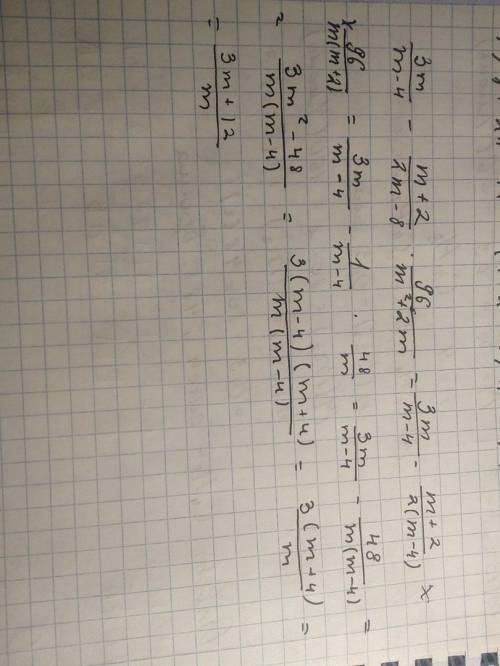 3m/(m-4) - (m+2)/(2m-8) · 96/(m²+2m) = 3m/(m-4) - (m+2)/(2(m-4)) ×
× 96/(m(m+2)) = 3m/(m-4) - 1/(m-4) · 48/m = 3m/(m-4) - 48/(m(m-4)) =
= (3m²-48)/(m(m-4)) = 3(m-4)(m+4)/(m(m-4)) = 3(m+4)/m =
= (3m+12)/m